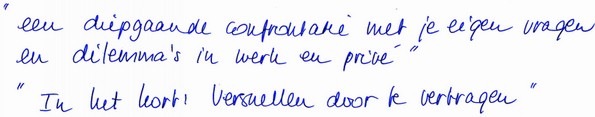 "een diepgaande confrontatie met je eigen vragen
en dilemma's in werk en privé"
"In het kort: Versnellen door te vertragen"